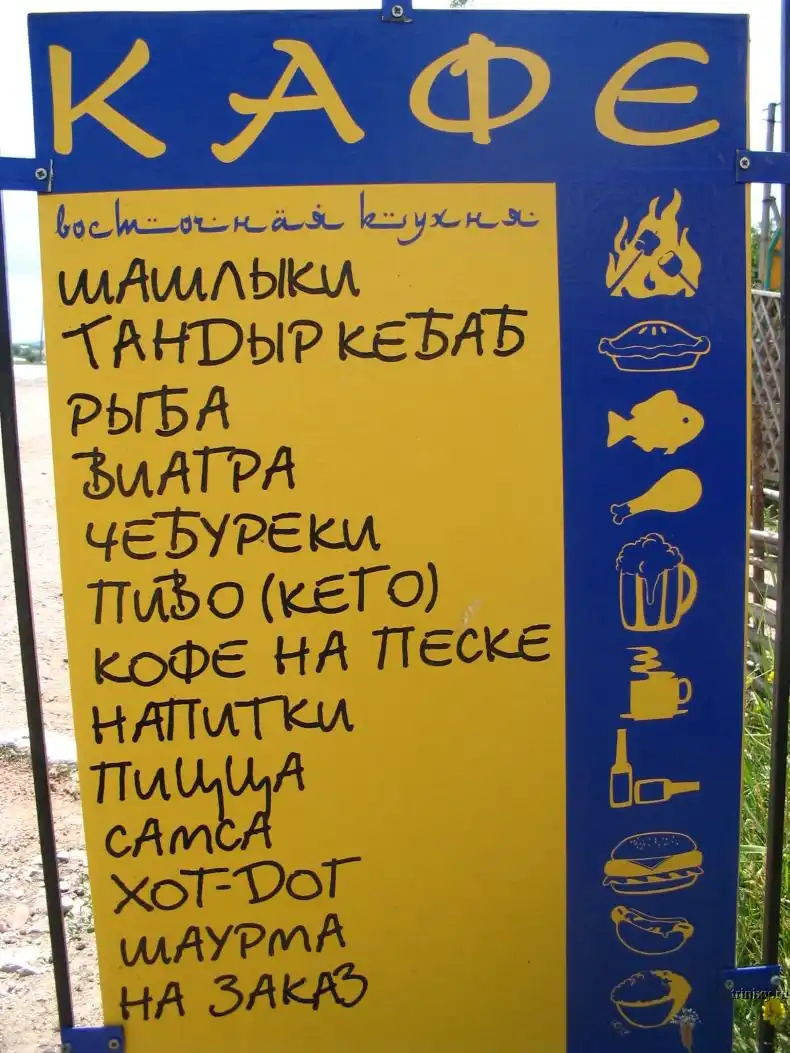 КАФЕ
восточная кухня
ШАШЛЫКИ
ТАНДЫР КЕБАБ
РЫБА
ВИАГРА
ЧЕБУРЕКИ
ПИВО (КЕГО)
КОФЕ НА ПЕСКЕ
НАПИТКИ
ПИЩЩА
САМСА
ХОТ-DОТ
ШАУРМА
НА ЗАКАЗ
trinixy.ru